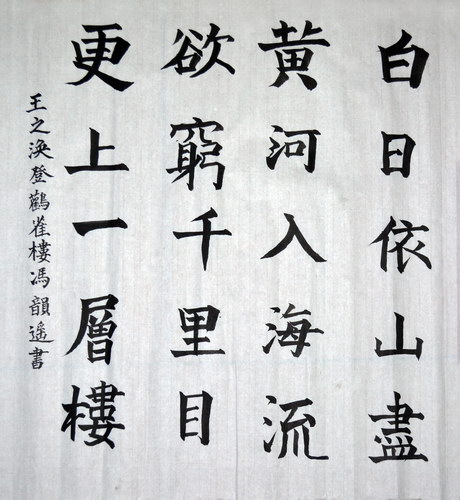 白日依山盡
黃河入海流
欲窮千里目
更上一層樓
王之渙登鸛雀樓馮韻遥書